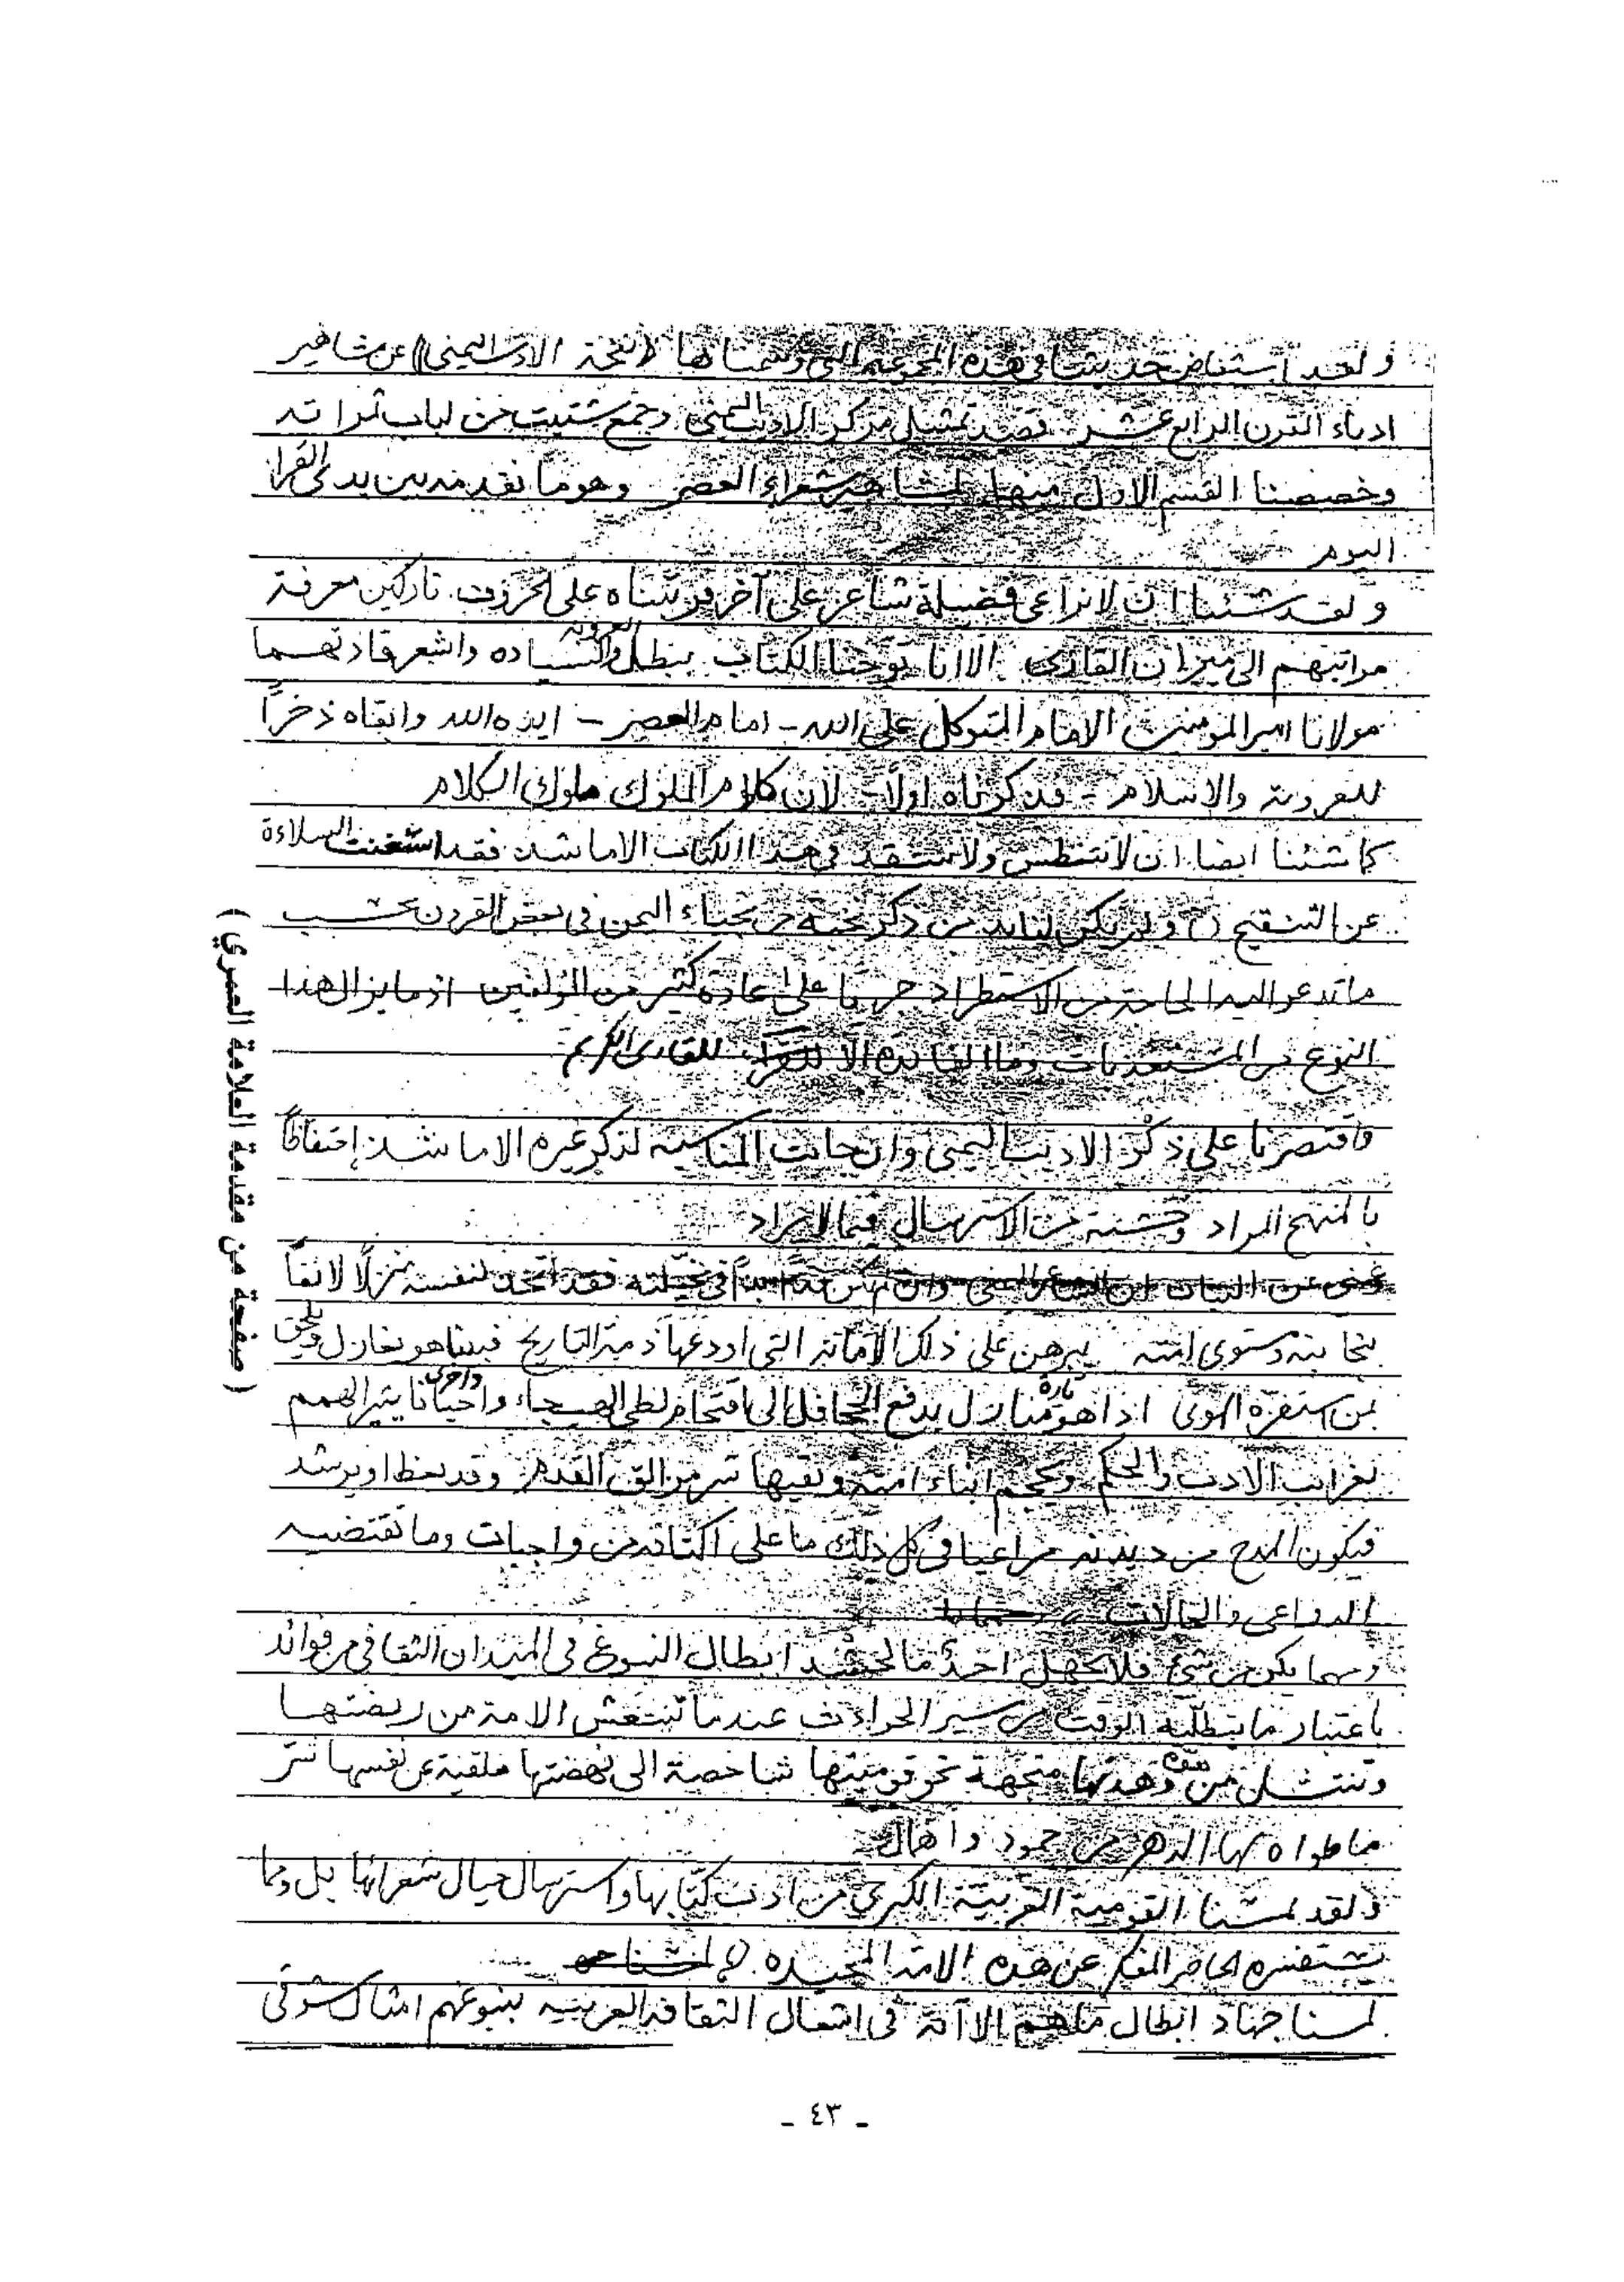 ولقد استفاض حديثنا في هذه المجموعة التي وسمناها (نفحة الادب اليمني) عن مشاهير
ادباء القرن الرابع عشر قصد تمثيل مركز الادب اليمني وجمع شتيت من لباب ثمراته
وخصصنا القسم الاول منها لمشاهير شعراء العصر وهو ما نقدمه بين يدي القراء
اليوم
ولقد شئنا ان لا نراعي فضيلة شاعر على آخر ورتبناه على الحروف تاركين معرفة
مراتبهم الى ميزان القارئ الا انا توجنا الكتاب ببطل العروبة والسياده واشعر قادتهما
مولانا امير المومنين الامام المتوكل على الله - امام العصر - ايده الله وابقاه ذخراً
للعروبة والاسلام - فذكرناه اولاً - لان كلام الملوك ملوك الكلام
كما شئنا ايضا ان لا نتنطس ولا ننتقد في هذا الكتاب الا ما شذ فقد استغنت السلاءة
عن التنقيح ولم يكن لنا بد من ذكر نخبة من نجباء اليمن في بعض القرون بحسب
ما تدعو اليه الحاجة من الاستطراد جريا على عادة كثير من المؤلفين اذ ما يزال هذا
النوع من المستعذبات وما الفائدة الا للقارئ الكريم
فاقتصرنا على ذكر الاديب اليمني وان حانت المناسبه لذكر غيره الا ما شذ إحتفاظاً
بالمنهج المراد وخشية من الاسترسال فيما لا يراد
غني عن البيان ان الشاعر اليمني وان في مخيلته فقد اتخذ لنفسه منزلاً لائقاً
بجانبه ومستوى امته يبرهن على ذلك الأمآثر التي اودعها ذمة التاريخ فبينا هو يغازل ويلحق
بمن استفزه الهوى اذا هو تارة منازل يدفع الجحافل الى اقتحام لظى الهيجاء واحيانا واخرى يثير الهمم
بغرائب الادب والحكم ابناء امته ويقيها شر مزالق القدم وقد يعظ او يرشد
فيكون المدح من ديدنه مراعيا في كل ذلك ما على اكتافه من واجبات وما تقتضيه
الدواعي والحالات
ومهما يكن من شئ فلا يجهل احدٌ ما ابطال النبوغ في الميدان الثقافي من فوائد
باعتبار ما يتطلبه الوقت من سير الحوادث عندما تنتعش الامة من ربضتها
وتنتشل من وهدتها متجهة نحو قوميتها شاخصة الى نهضتها ملقية عن نفسها ستر
ما طواه بها الدهر من جمود واهمال
ولقد لمسنا القومية العربية الكبرى من ادب كتابها واسترسال خيال شعرائها بل ومما
يستفسره الحاضر المفكر عن هذه الامة المجيده
لمسنا جهاد ابطال ما هم الا آية في اشعال الثقافه العربيه بنبوغهم امثال شوقي
(صفحة من مقدمة العلامة العمري)
- ٤٣ -